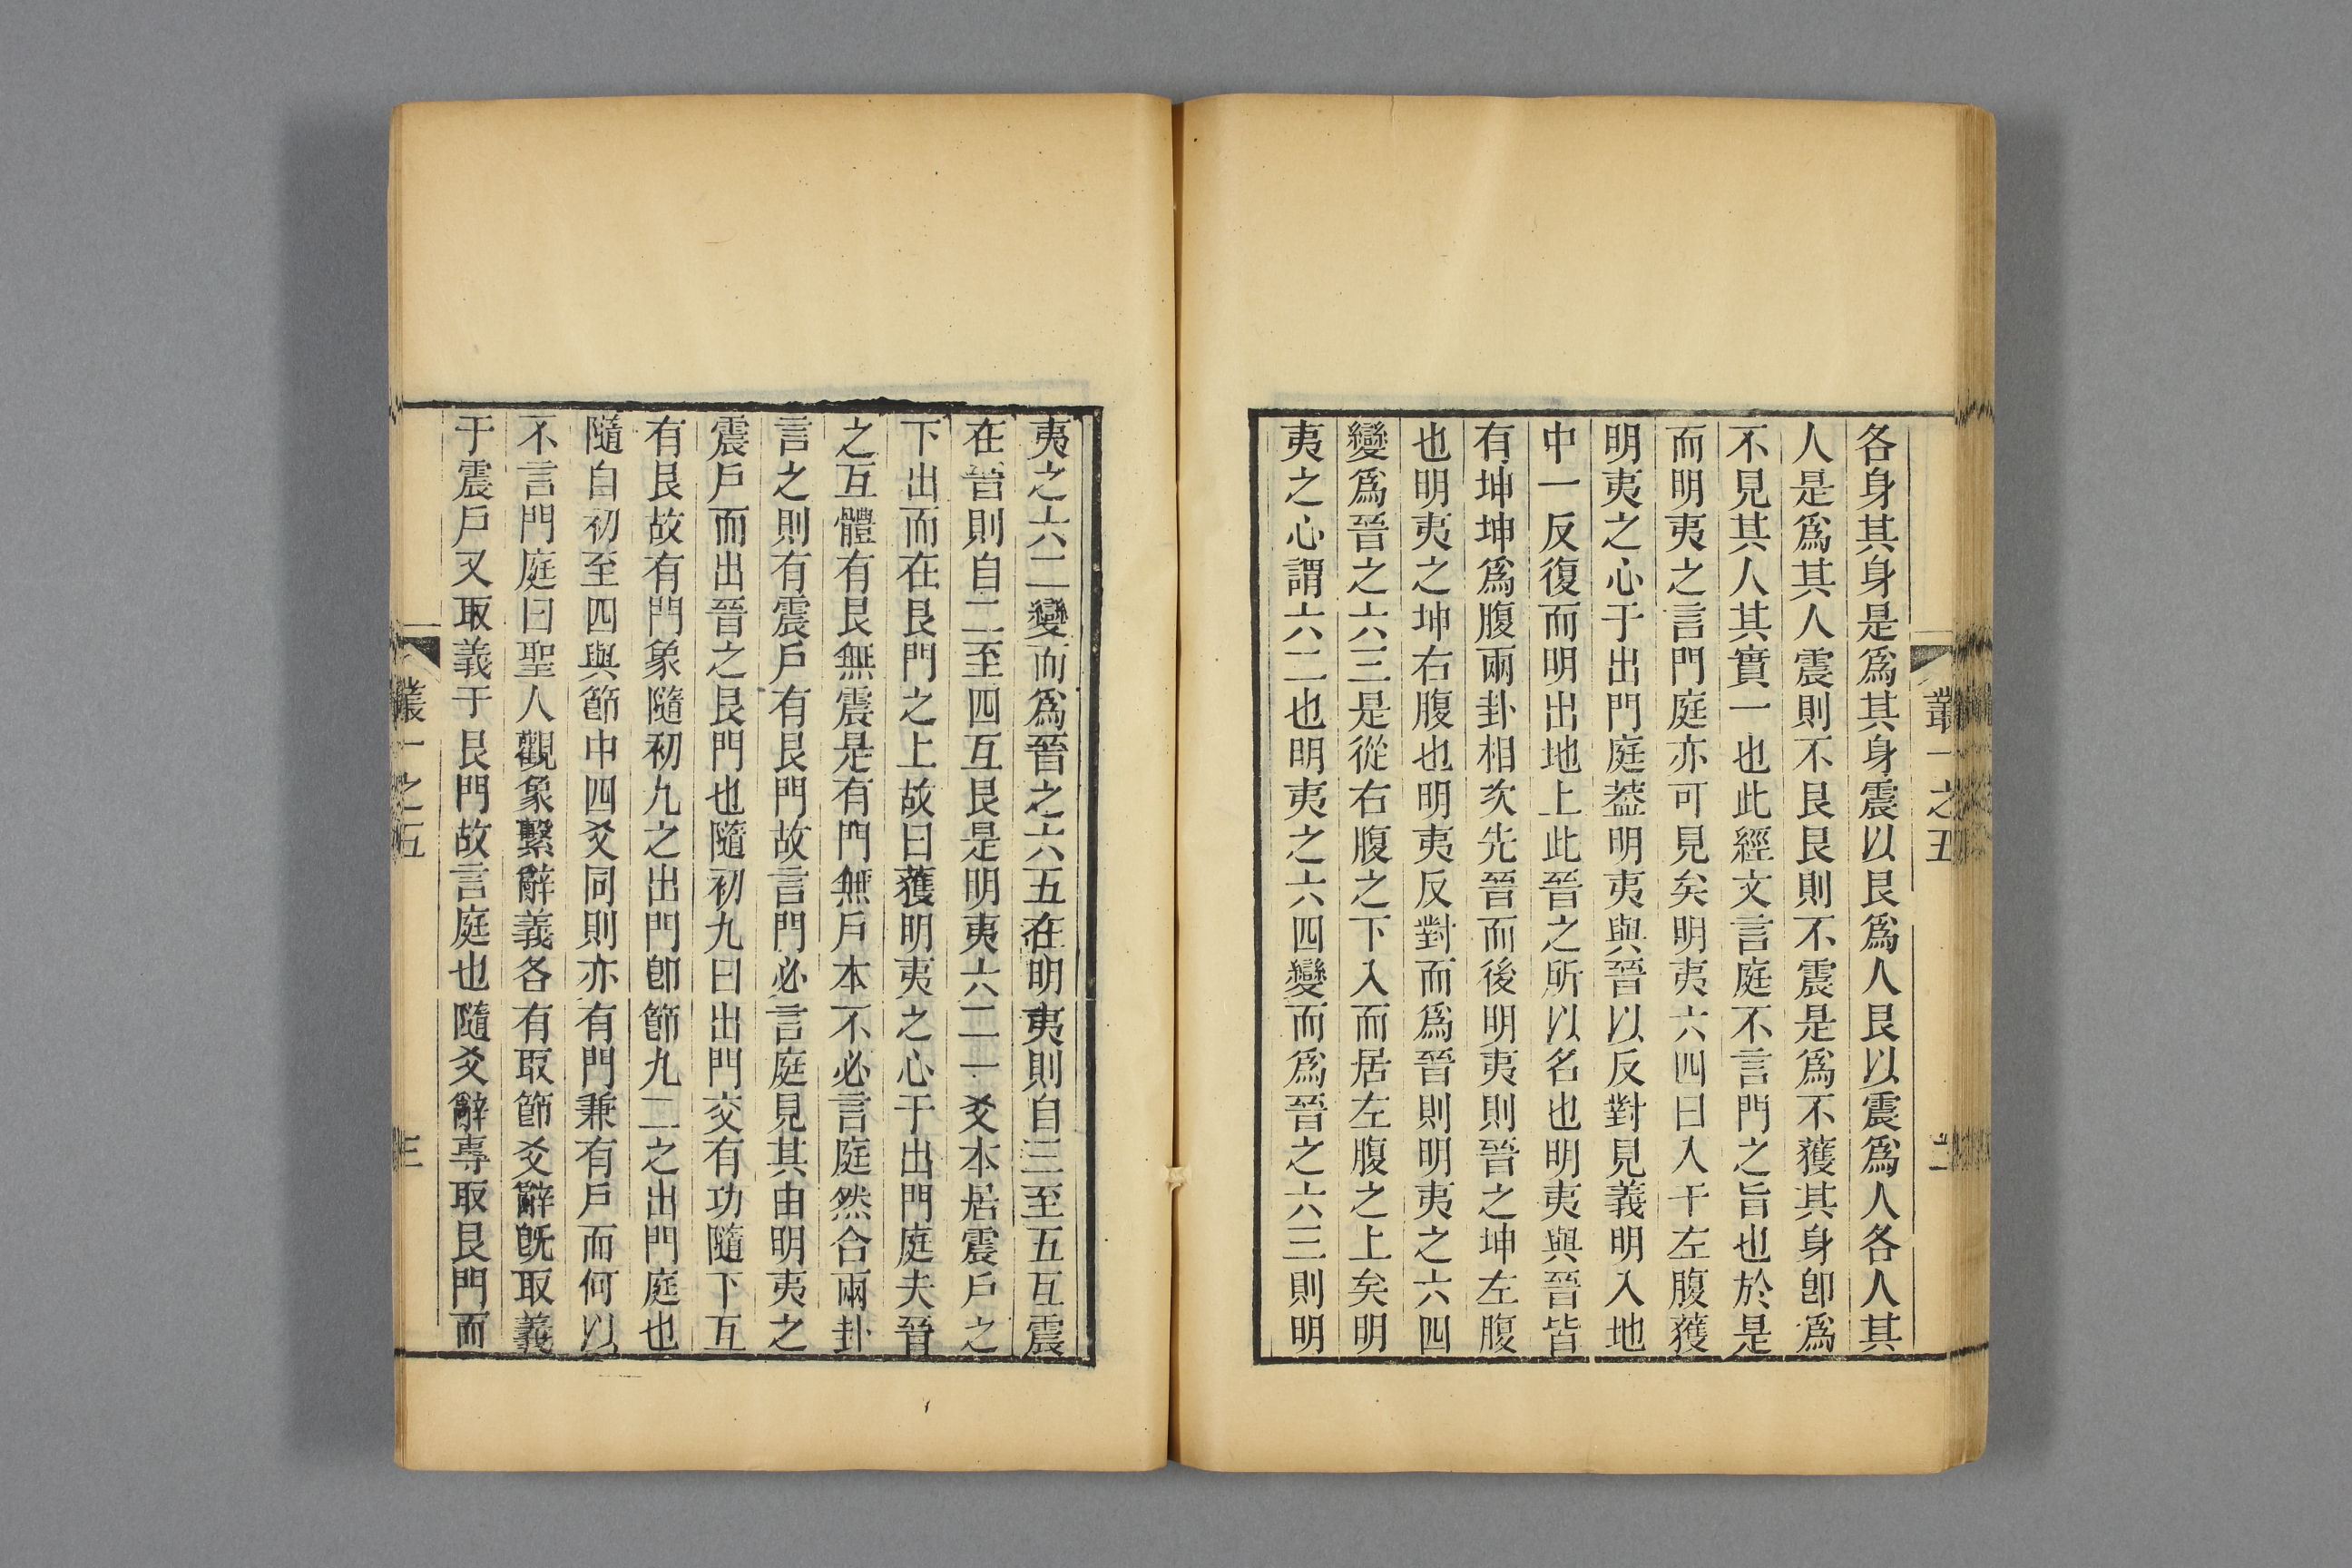 叢一之五
各身其身是爲其身震以艮爲人艮以震爲人各人其
人是爲其人震則不艮艮則不震是爲不獲其身卽爲
不見其人其實一也此經文言庭不言門之旨也於是
而明夷之言門庭亦可見矣明夷六四曰入于左腹獲
明夷之心于出門庭葢明夷與晉以反對見義明入地
中一反復而明出地上此晉之所以名也明夷與晉皆
有坤坤爲腹兩卦相次先晉而後明夷則晉之坤左腹
也明夷之坤右腹也明夷反對而爲晉則明夷之六四
變爲晉之六三是從右腹之下入而居左腹之上矣明
夷之心謂六二也明夷之六四變而爲晉之六三則明
夷之六二變而爲晉之六五在明夷則自三至五互震
在晉則自二至四互艮是明夷六二一爻本居震戶之
下出而在艮門之上故曰獲明夷之心于出門庭夫晉
之互體有艮無震是有門無戶本不必言庭然合兩卦
言之則有震戶有艮門故言門必言庭見其由明夷之
震戶而出晉之艮門也隨初九曰出門交有功隨下互
有艮故有門象隨初九之出門卽節九二之出門庭也
隨自初至四與節中四爻同則亦有門兼有戶而何以
不言門庭曰聖人觀象繫辭義各有取節爻辭旣取義
于震戶又取義于艮門故言庭也隨爻辭專取艮門而
叢一之五
三